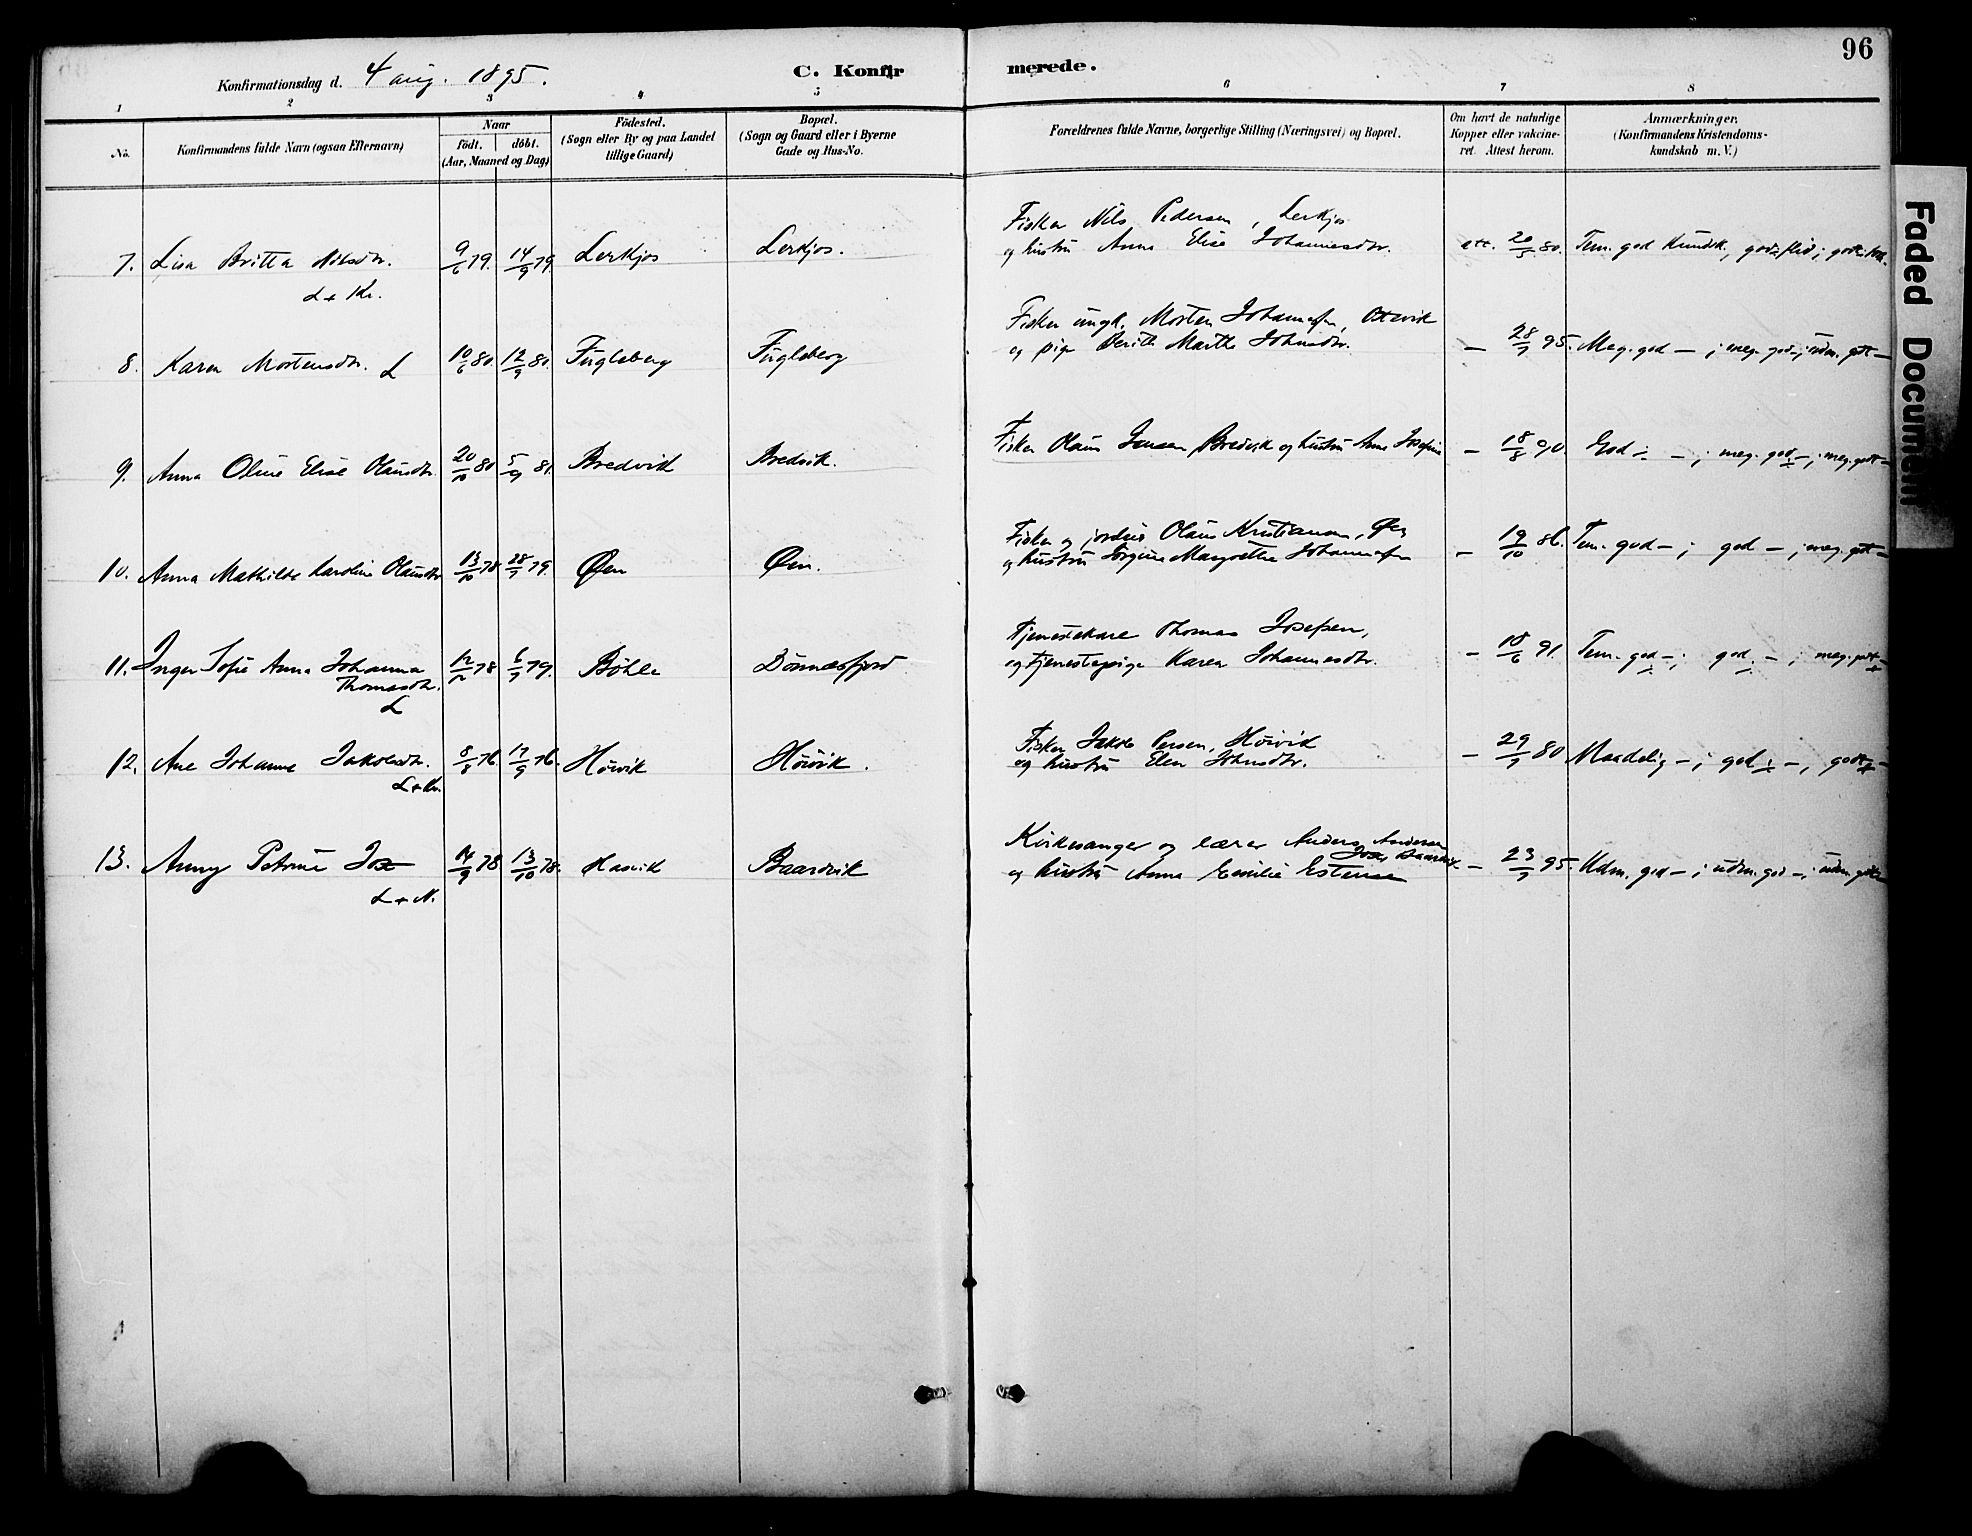 96
Konfirmationsdag d. 4 aug. 1895.
C. Konfirmerede.
1 2 3 4 5 6 7 8
No.
Konfirmandens fulde Navn (ogsaa Efternavn)
Naar
født. døbt.
(Aar, Maaned og Dag)
Fødested.
(Sogn eller By og paa Landet
tillige Gaard)
Bopæl.
(Sogn og Gaard eller i Byerne
Gade og Hus-No.
Forældrenes fulde Navne, borgerlige Stilling (Næringsvei) og Bopæl.
Om havt de naturlige
Kopper eller vakcine-
ret. Attest herom.
Anmærkninger.
(Konfirmandens Kristendoms-
kundskab m. V.)
Fisker Nils Pedersen, Lerkjos
7. Lisa Britta Nilsdtr. 9/6 79. 14/9 79. Lerkjos Lerkjos. og hustru Anna Elise Johannesdtr. att. 20/5 80. Tem. god Kundsk., god flid;
L + Kr.
Fisker ungk. Morten
8. Karen Mortensdtr. L 10/6 80. 12/9 80. Fugleberg Fugleberg og pige Berith Marthe Johnsdtr. — 28/7 95. Meg. god — ; meg. god ; udm. godt —
9. Anna Oline Elise Olausdtr. 20/10 80 5/9 81. Bredvik Bredvik. Fisker Olaus Jensen, Bredvik og hustru Anne Josefine — 18/8 90. God ÷ — ; meg. god — ; meg. godt —
Fisker og jordeier Olaus Kristiansen, Øen
10. Anna Mathilde Karoline Olausdtr 13/10 78 28/9 79. Øen Øen. og hustru Jørgine Margrethe — 19/10 86. Tem. god — ; god — ; meg. godt —
Tjenestekare Thomas Josefsen,
11. Inger Sofie Anna Johanna 78 79. Bøhle Dønnesfjord og tjenestepige Karen Johannesdtr. — 18/6 91. Tem. god — ; god — ; meg. godt —
Thomasdtr.
L
Fisker Jakob Persen, Høivik
12. Ane Johanne Jakobsdtr. 8/8 76. 17/9 76. Høivik Høivik. og hustru Elen Johnsdtr. — 29/7 80 Maadelig — ; god ÷ — ; godt —
L + Kr.
Kirkesanger og lærer Anders Andersen
13. Anny Petrine 14/9 78 13/10 78. Hasvik Baardvik og hustru Anna Emilie — 23/7 95. Udm. god — ; udm. god — ; udm. godt —
L + N.
Faded Document